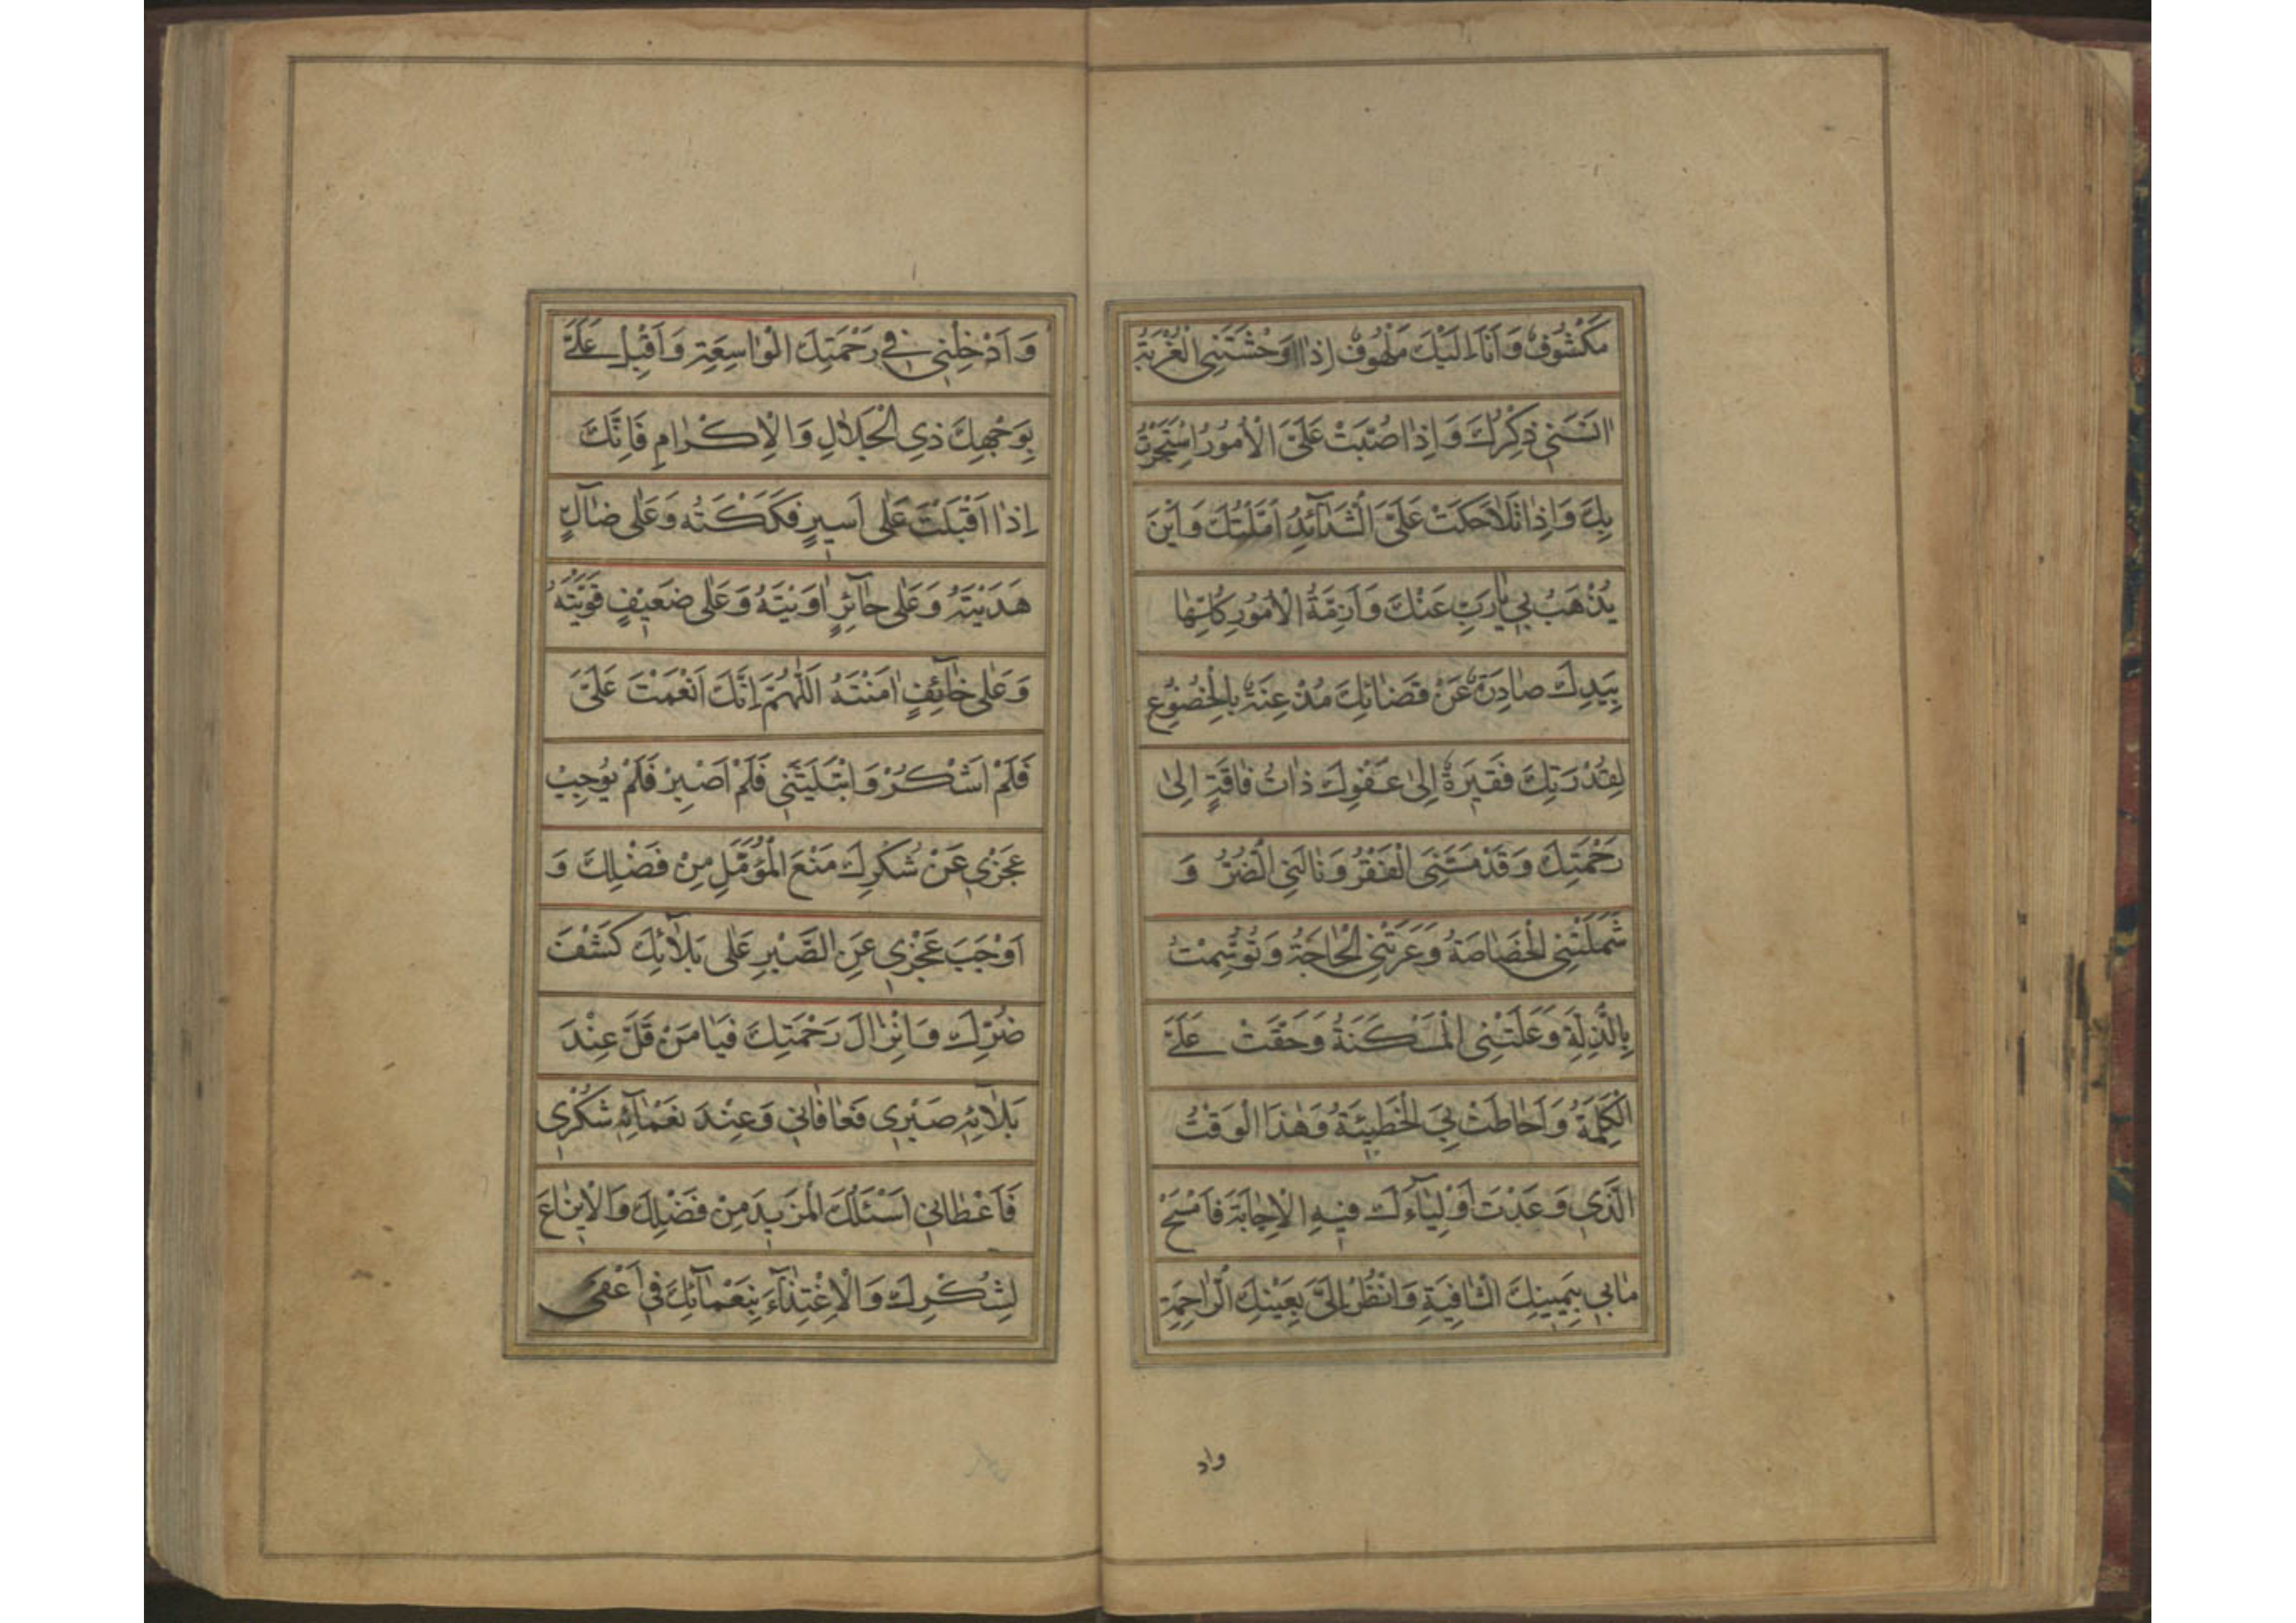 مَكْشُوفٌ وَ اَنَا اِلَيْكَ مَلْهُوفٌ اِذَا اَوْحَشَتْنِى الْغُرْبَةُ
انَسَنِى ذِكْرُكَ وَ اِذَا صُبَّتْ عَلَىَّ الْاُمُورُ اسْتَجَرْتُ
بِكَ وَ اِذَا تَلَاحَكَتْ عَلَىَّ الشَّدَآئِدُ اَمَّلْتُكَ وَ اَيْنَ
يُذْهَبُ بِى يَا رَبِّ عَنْكَ وَ اَزِمَّةُ الْاُمُورِ كُلِّهَا
بِيَدِكَ صَادِرَةٌ عَنْ قَضَائِكَ مُذْعِنَةً بِالْخُضُوعِ
لِقُدْرَتِكَ فَقِيرَةٌ اِلَى عَفْوِكَ ذَاتُ فَاقَةٍ اِلَى
رَحْمَتِكَ وَ قَدْ مَسَّنِىَ الْفَقْرُ وَ نَالَنِى الضُّرُّ وَ
شَمَلَتْنِى الْخَصَاصَةُ وَ عَرَتْنِى الْحَاجَةُ وَ تُوُسِّمْتُ
بِالذِّلَّةِ وَ عَلَتْنِى الْمَسْكَنَةُ وَ حَقَّتْ عَلَىَّ
الْكَلِمَةُ وَ اَحَاطَتْ بِىَ الْخَطِيئَةُ وَ هٰذَا الْوَقْتُ
الَّذِى وَعَدْتَ اَوْلِيَآءَكَ فِيهِ الْاِجَابَةَ فَامْسَحْ
مَا بِى بِيَمِينِكَ الشَّافِيَةِ وَ انْظُرْ اِلَىَّ بِعَيْنِكَ الرَّاحِمَةِ
واد
وَ اَدْخِلْنِى فِى رَحْمَتِكَ الْوَاسِعَةِ وَ اَقْبِلْ عَلَىَّ
بِوَجْهِكَ ذِى الْجَلَالِ وَ الْاِكْرَامِ فَاِنَّكَ
اِذَا اَقْبَلْتَ عَلَى اَسِيرٍ فَكَكْتَهُ وَ عَلَى ضَآلٍّ
هَدَيْتَهُ وَ عَلَى حَآئِرٍ اوَيْتَهُ وَ عَلَى ضَعِيفٍ قَوَّيْتَهُ
وَ عَلَى خَآئِفٍ امَنْتَهُ اَللّٰهُمَّ اِنَّكَ اَنْعَمْتَ عَلَىَّ
فَلَمْ اَشْكُرْ وَ ابْتَلَيْتَنِى فَلَمْ اَصْبِرْ فَلَمْ يُوجِبْ
عَجْزِى عَنْ شُكْرِكَ مَنْعَ الْمُؤَمَّلِ مِنْ فَضْلِكَ وَ
اَوْجَبَ عَجْزِى عَنِ الصَّبْرِ عَلَى بَلَآئِكَ كَشْفَ
ضُرِّكَ وَ اِنْزَالَ رَحْمَتِكَ فَيَا مَنْ قَلَّ عِنْدَ
بَلَآئِهِ صَبْرِى فَعَافَانِى وَ عِنْدَ نَعْمَآئِهِ شُكْرِى
فَاَعْطَانِى اَسْئَلُكَ الْمَزِيدَ مِنْ فَضْلِكَ وَ الْاِيزَاعَ
لِشُكْرِكَ وَ الْاِغْتِذَآءَ بِنَعْمَآئِكَ فِى اَعْفَى